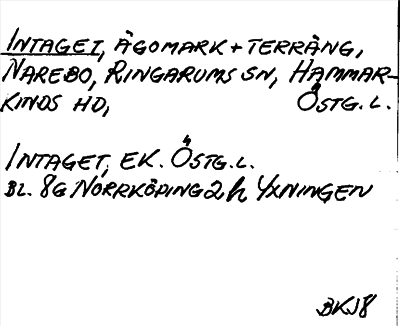 INTAGET, ÄGOMARK + TERRÄNG,
NAREBO, RINGARUMS SN, HAMMAR-
KINDS HD, ÖSTG. L.
INTAGET, EK. ÖSTG. L.
BL. 8G NORRKÖPING 2h YXNINGEN
BKJ8